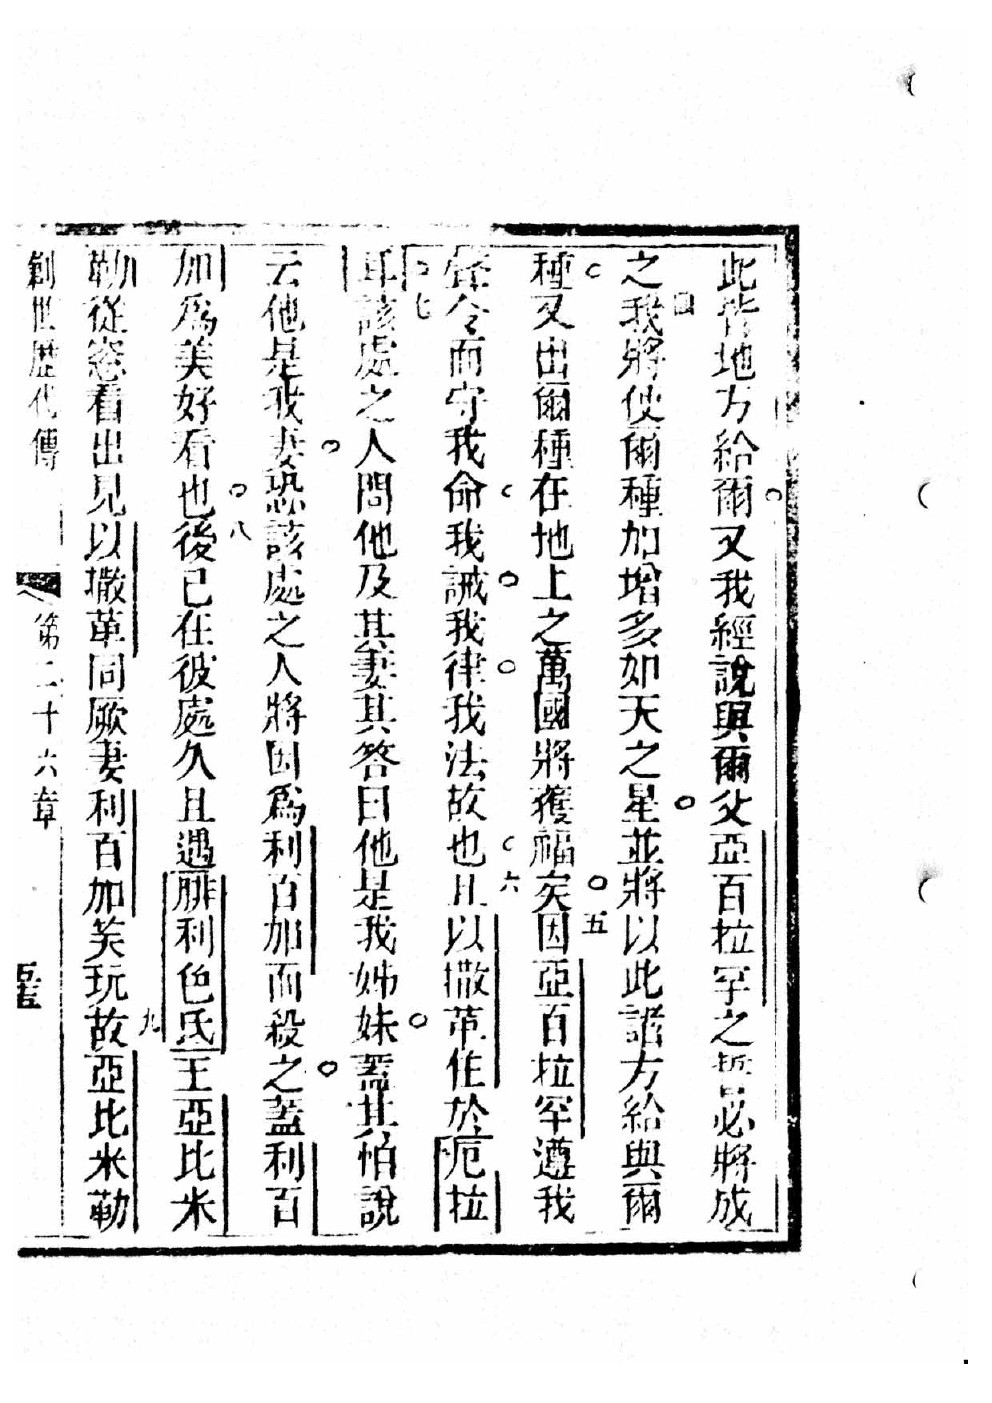 此皆地方給爾又我經說與爾父亞百拉罕之誓必將成
之四我將使爾種加增多如天之星並將以此諸方給與爾
種又出爾種在地上之萬國將獲福矣五因亞百拉罕遵我
聲令而守我命我誡我律我法故也六且以撒革住於厄拉
耳七該處之人問他及其妻其答曰他是我姊妹蓋其怕說
云他是我妻恐該處之人將因爲利百加而殺之蓋利百
加爲美好看也八後已在彼處久且遇腓利色氏王亞比米
勒從窓看出見以撒革同厥妻利百加笑玩九故亞比米勒
創世歷代傳 第二十六章